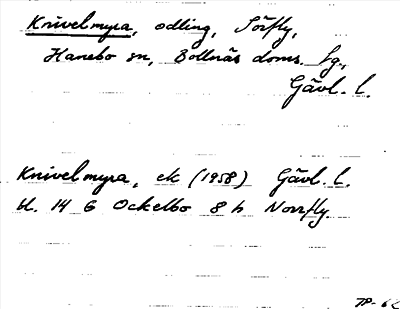 Knivelmyra, odling, Sörfly,
Hanebo sn, Bollnäs doms. fg.,
Gävl. l.
Knivelmyra, ek (1958) Gävl. l.
bl. 14 G Ockelbo 8 h Norrfly.
TP-62